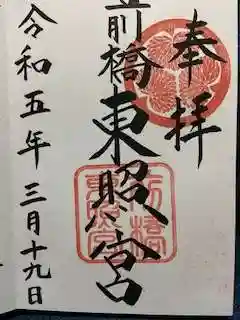 奉拝
前橋東照宮
令和五年三月十九日
前橋
東照宮